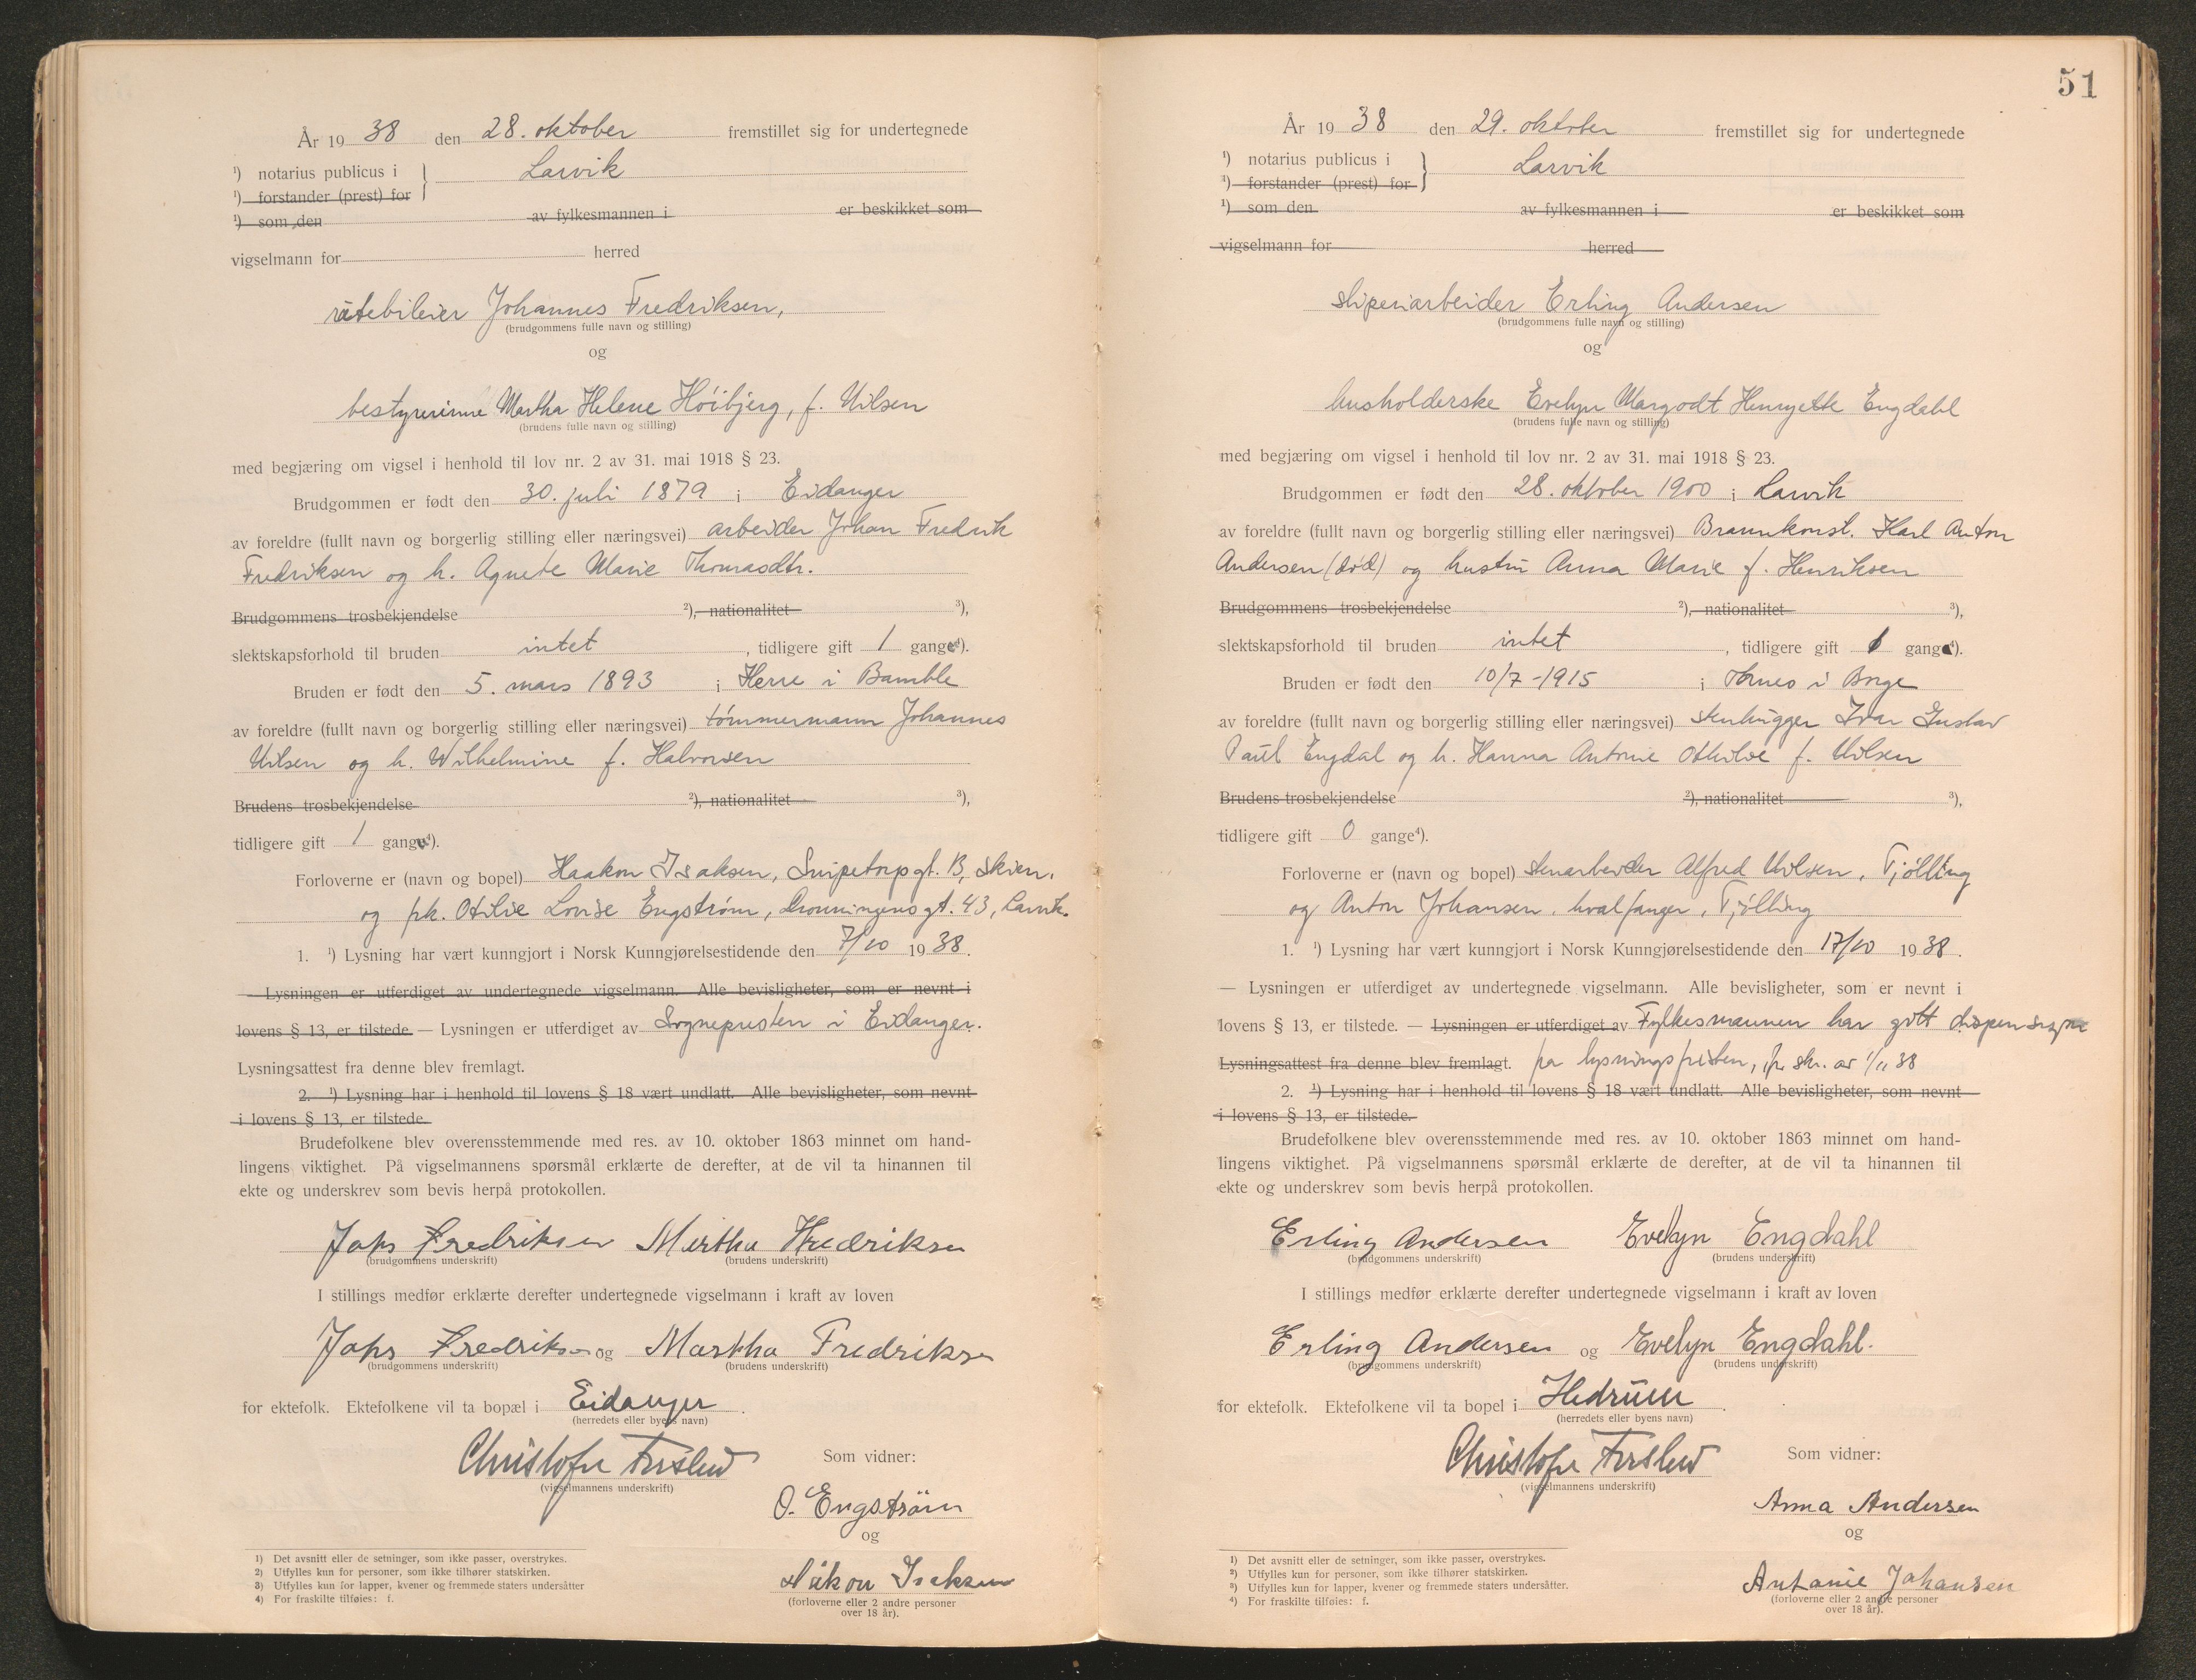 År 19 38 den 28. oktober fremstillet sig for undertegnede
¹) notarius publicus i } Larvik
¹) forstander (prest) for
¹) som den av fylkesmannen i er beskikket som
vigselmann for herred
rutebileier Johannes Fredriksen,
(brudgommens fulle navn og stilling)
og
bestyrerinne Martha Helene Höibjerg, f. Nilsen
(brudens fulle navn og stilling)
med begjæring om vigsel i henhold til lov nr. 2 av 31. mai 1918 § 23.
Brudgommen er født den 30. juli 1879 i Eidanger
av foreldre (fullt navn og borgerlig stilling eller næringsvei) arbeider Johan Fredrik
Fredriksen og h. Agnete Marie Thomasdtr.
Brudgommens trosbekjendelse ²), nationalitet ³),
slektskapsforhold til bruden intet, tidligere gift 1 gang⁴).
Bruden er født den 5. mars 1893 i Herre i Bamble
av foreldre (fullt navn og borgerlig stilling eller næringsvei) tömmermann Johannes
Nilsen og h. Wilhelmine f. Halvorsen
Brudens trosbekjendelse ²), nationalitet ³),
tidligere gift 1 gang⁴).
Forloverne er (navn og bopel) Haakon Isaksen, Snipetorpgt. 13, Skien.
og frk. Otilie Lovise Engström, Dronningensgt. 43, Larvik.
1. ¹) Lysning har vært kunngjort i Norsk Kunngjørelsestidende den 7/10 19 38.
— Lysningen er utferdiget av undertegnede vigselmann. Alle bevisligheter, som er nevnt i
lovens § 13, er tilstede. — Lysningen er utferdiget av Sognepresten i Eidanger.
Lysningsattest fra denne blev fremlagt.
2. ¹) Lysning har i henhold til lovens § 18 vært undlatt. Alle bevisligheter, som nevnt
i lovens § 13, er tilstede.
Brudefolkene blev overensstemmende med res. av 10. oktober 1863 minnet om hand-
lingens viktighet. På vigselmannens spørsmål erklærte de derefter, at de vil ta hinannen til
ekte og underskrev som bevis herpå protokollen.
Johs Fredriksen Martha Fredriksen
(brudgommens underskrift) (brudens underskrift)
I stillings medfør erklærte derefter undertegnede vigselmann i kraft av loven
Johs Fredriksen og Martha Fredriksen
(brudgommens underskrift) (brudens underskrift)
for ektefolk. Ektefolkene vil ta bopæl i Eidanger.
(herredets eller byens navn)
Christofer Ferslew Som vidner:
(vigselmannens underskrift)
O. Engström
og
Håkon Isaksen
(forloverne eller 2 andre personer
over 18 år).
¹) Det avsnitt eller de setninger, som ikke passer, overstrykes.
²) Utfylles kun for personer, som ikke tilhører statskirken.
³) Utfylles kun for lapper, kvener og fremmede staters undersåtter
⁴) For fraskilte tilføies: f.
51
År 19 38 den 29. oktober fremstillet sig for undertegnede
¹) notarius publicus i } Larvik
¹) forstander (prest) for
¹) som den av fylkesmannen i er beskikket som
vigselmann for herred
sliperiarbeider Erling Andersen
(brudgommens fulle navn og stilling)
og
husholderske Evelyn Margodt Henryette Engdahl
(brudens fulle navn og stilling)
med begjæring om vigsel i henhold til lov nr. 2 av 31. mai 1918 § 23.
Brudgommen er født den 28. oktober 1900 i Larvik
av foreldre (fullt navn og borgerlig stilling eller næringsvei) Brannkonst. Karl Anton
Andersen (död) og hustru Anna Marie f. Henriksen
Brudgommens trosbekjendelse ²), nationalitet ³),
slektskapsforhold til bruden intet, tidligere gift gang⁴).
Bruden er født den 10/7-1915 i Tornes i Borge
av foreldre (fullt navn og borgerlig stilling eller næringsvei) stenhugger Ivar Gustav
Paul Engdal og h. Hanna Antonie Othilie f. Nilsen
Brudens trosbekjendelse ²), nationalitet ³),
tidligere gift 0 gange⁴).
Forloverne er (navn og bopel) stenarbeider Alfred Nilsen, Tjölling
og Anton Johansen, hvalfanger, Tjölling
1. ¹) Lysning har vært kunngjort i Norsk Kunngjørelsestidende den 17/10 19 38.
— Lysningen er utferdiget av undertegnede vigselmann. Alle bevisligheter, som er nevnt i
lovens § 13, er tilstede. — Lysningen er utferdiget av Fylkesmannen har gitt dispensasjon
Lysningsattest fra denne blev fremlagt. fra lysningsfristen, skr. av 38
2. ¹) Lysning har i henhold til lovens § 18 vært undlatt. Alle bevisligheter, som nevnt
i lovens § 13, er tilstede.
Brudefolkene blev overensstemmende med res. av 10. oktober 1863 minnet om hand-
lingens viktighet. På vigselmannens spørsmål erklærte de derefter, at de vil ta hinannen til
ekte og underskrev som bevis herpå protokollen.
Erling Andersen Evelyn Engdahl
(brudgommens underskrift) (brudens underskrift)
I stillings medfør erklærte derefter undertegnede vigselmann i kraft av loven
Erling Andersen og Evelyn Engdahl.
(brudgommens underskrift) (brudens underskrift)
for ektefolk. Ektefolkene vil ta bopel i Hedrum.
(herredets eller byens navn)
Christofer Ferslew Som vidner:
(vigselmannens underskrift)
Anna Andersen
og
Antonie Johansen
(forloverne eller 2 andre personer
over 18 år).
¹) Det avsnitt eller de setninger, som ikke passer, overstrykes.
²) Utfylles kun for personer, som ikke tilhører statskirken.
³) Utfylles kun for lapper, kvener og fremmede staters undersåtter.
⁴) For fraskilte tilføies: f.